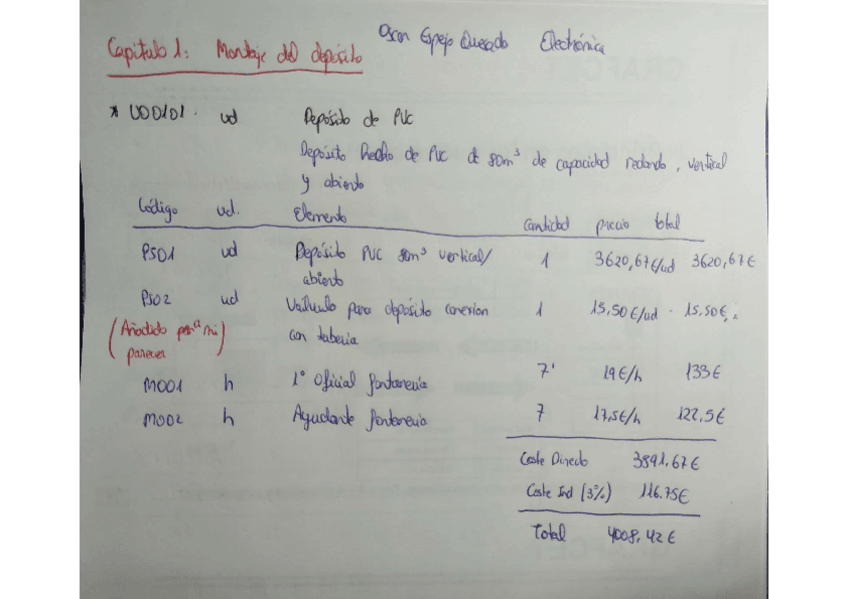 Oscar Espejo Quesada Electrónica
Capítulo 1: Montaje del depósito
* UD0101. ud Depósito de PVC
Depósito hecho de PVC de 80m³ de capacidad redondo, vertical
y abierto
Código ud. Elemento Cantidad precio total
PS01 ud Depósito PVC 80m³ vertical/ 1 3620,67€/ud 3620,67€
abierto
PS02 ud para depósito conexion 1 15,50€/ud 15,50€
(Añadido por mi con tuberia
parecer)
MO01 h 1º Oficial fontaneria 7 19€/h 133€
MO02 h Ayudante fontaneria 7 17,5€/h 122,5€
Coste Directo 3891,67€
Coste Ind (3%) 116.75€
Total 4008,42€